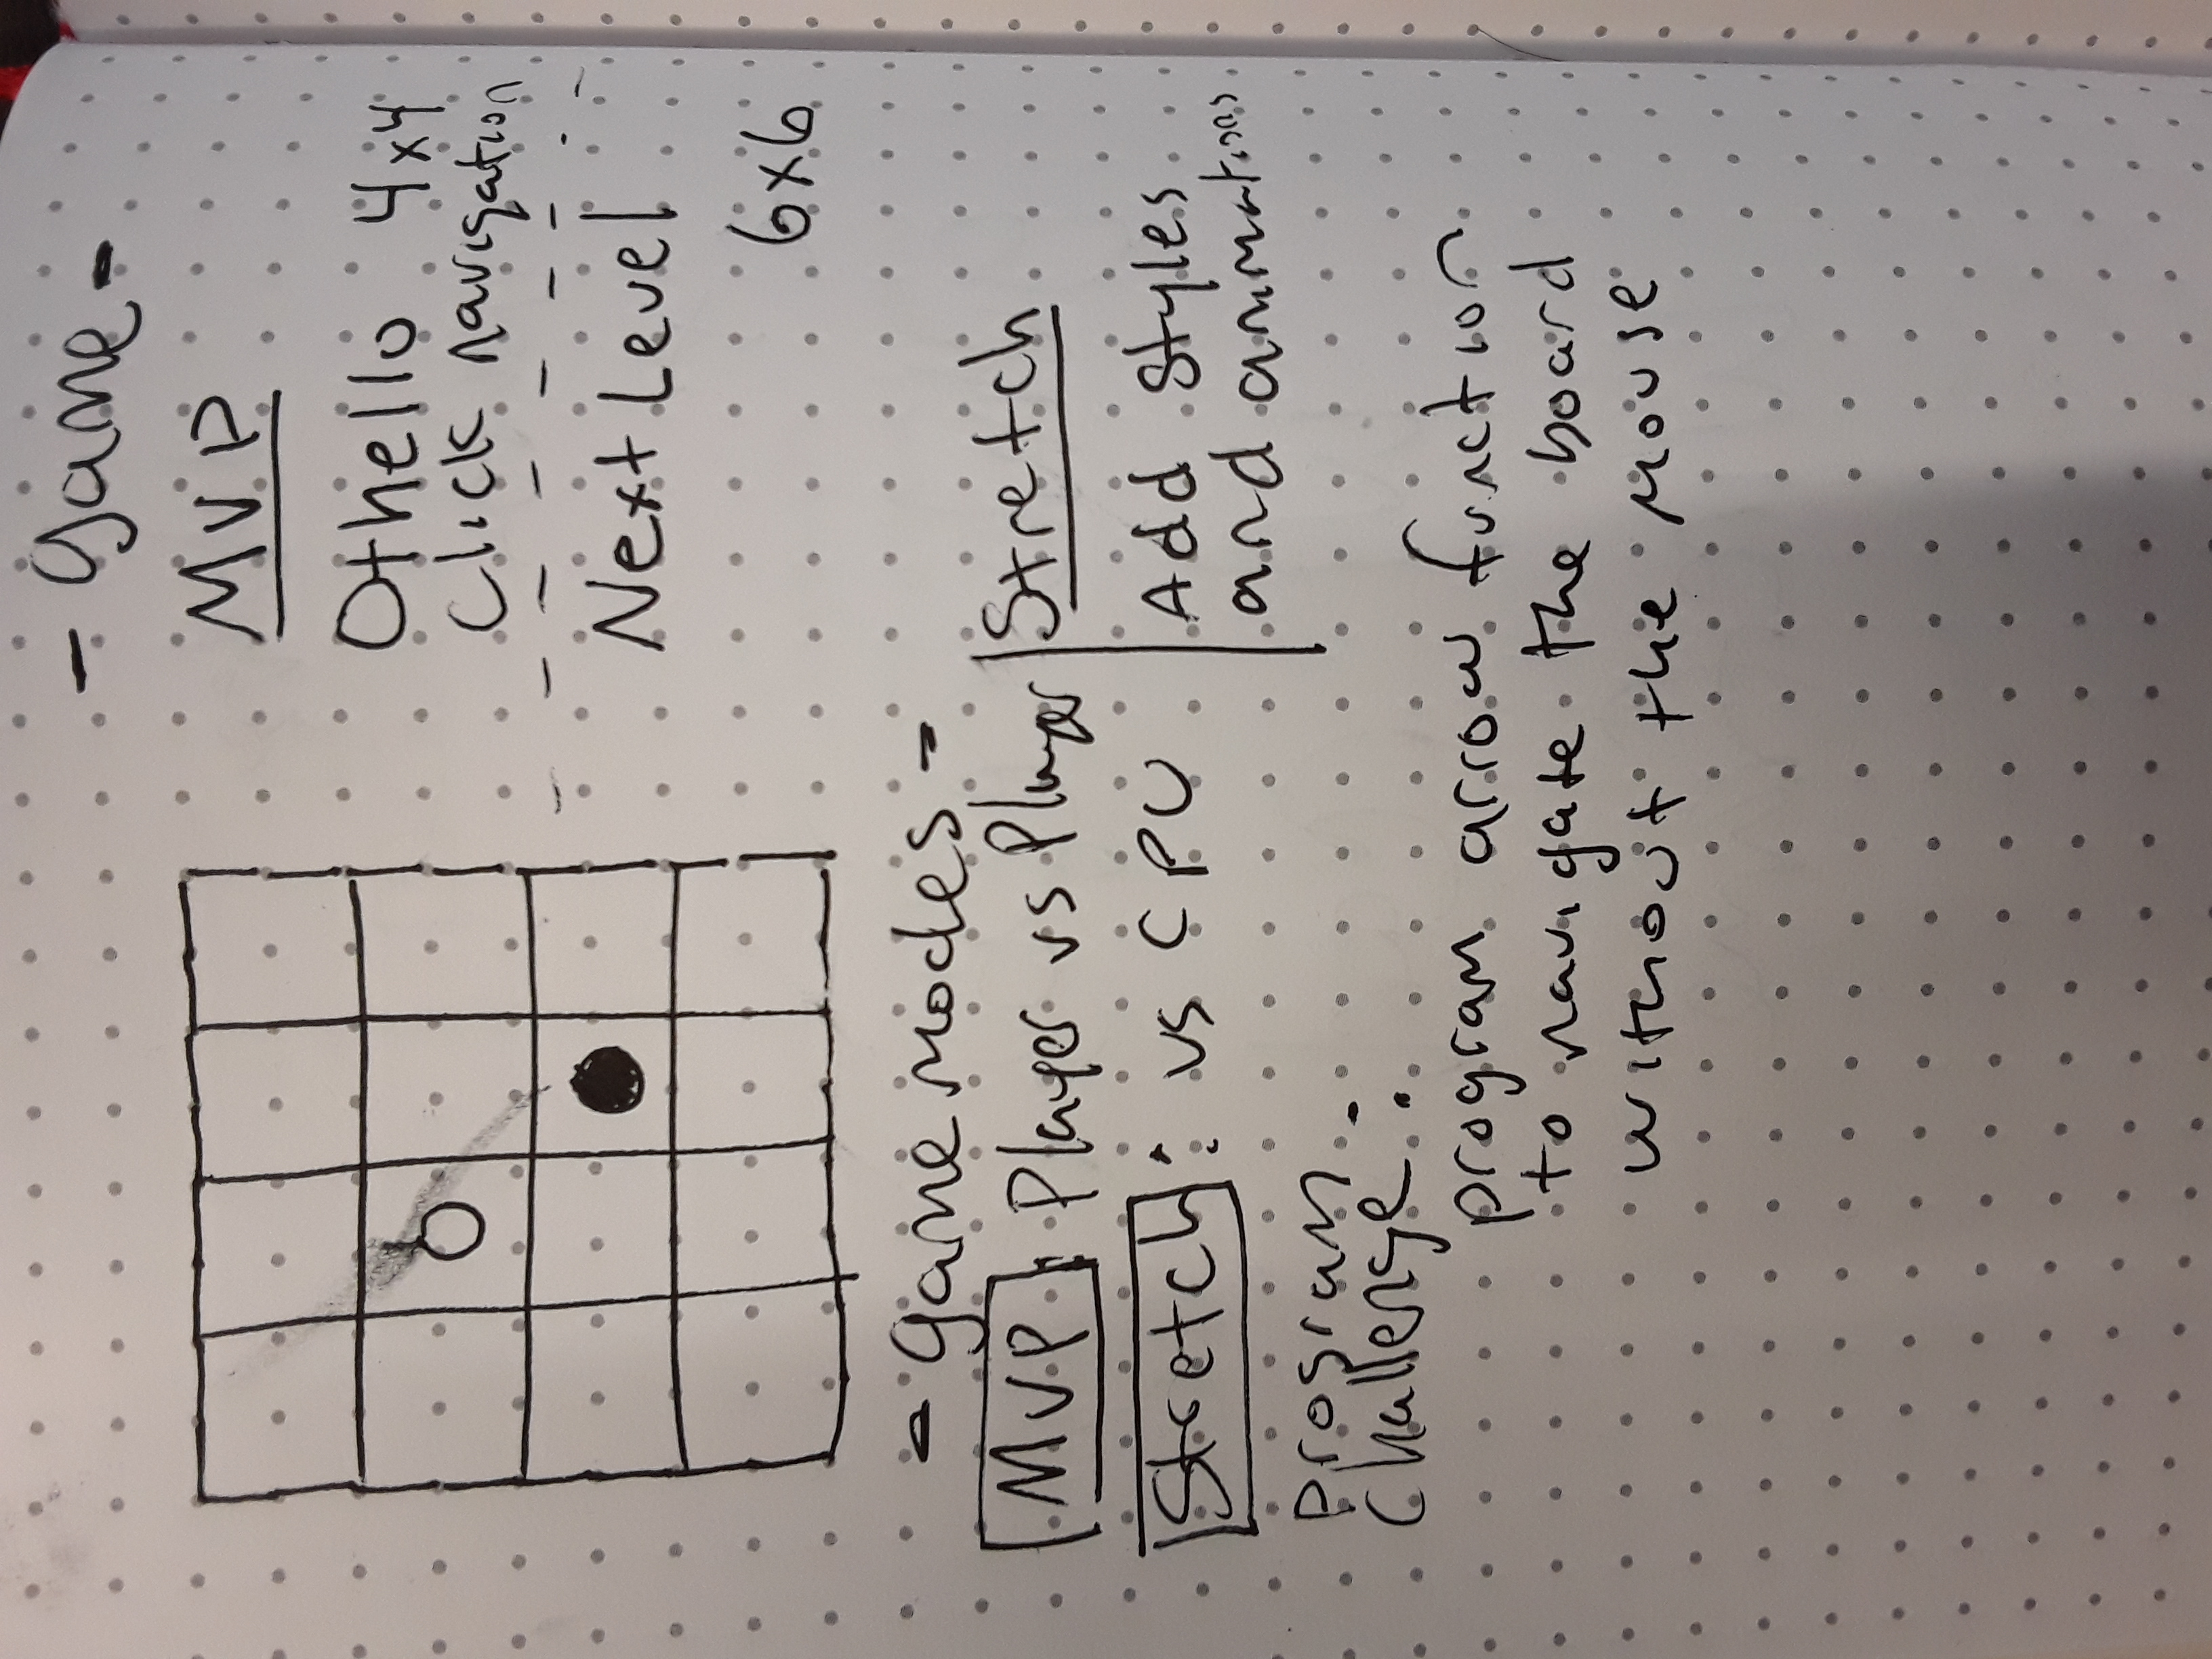 - Game -
MVP
Othello 4x4
Click navigation
Next Level
6x6
- Game modes -
MVP: Player vs Player
Stretch: vs CPU
Stretch
Add styles
and animations
Program
Challenge:
program arrow function
to navigate the board
without the mouse